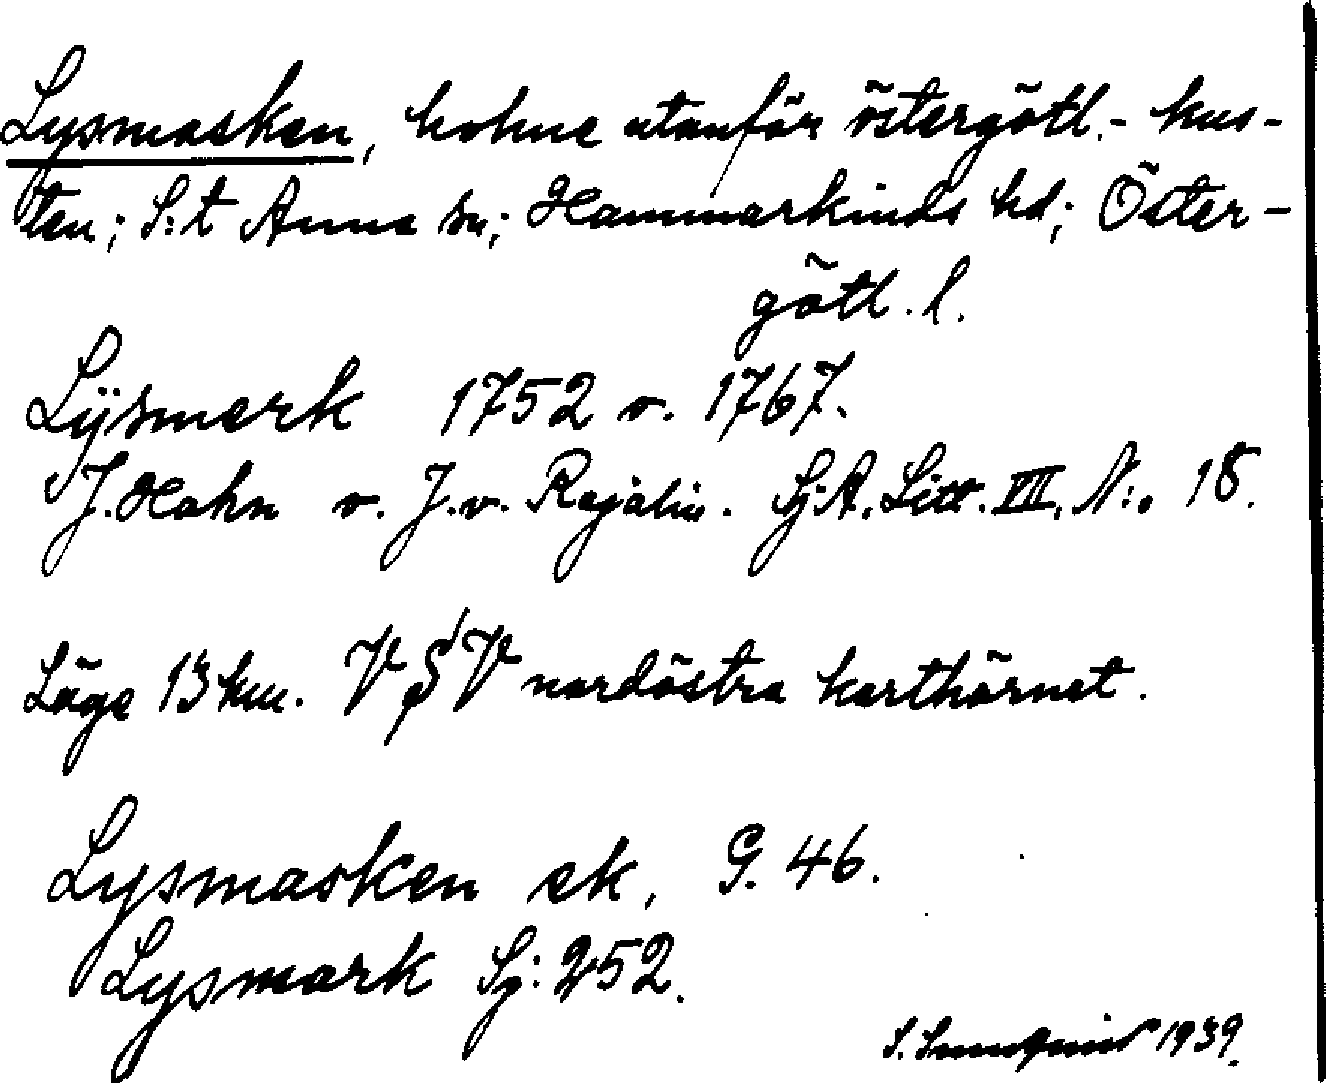 Lysmasken, holme utanför östergötl.- kus-
ten; S:t Anna sn; Hammarkinds hd; Öster-
götl. l.
Lÿsmerk 1752 o. 1767.
J. Hahn o. J. v. Rajalin. Sj. A. Litt. VIII, N:o 18.
Läge 13 km. V S V nordöstra karthörnet.
Lysmasken ek. G. 46.
Lysmark Sj: 252.
S. 1939.